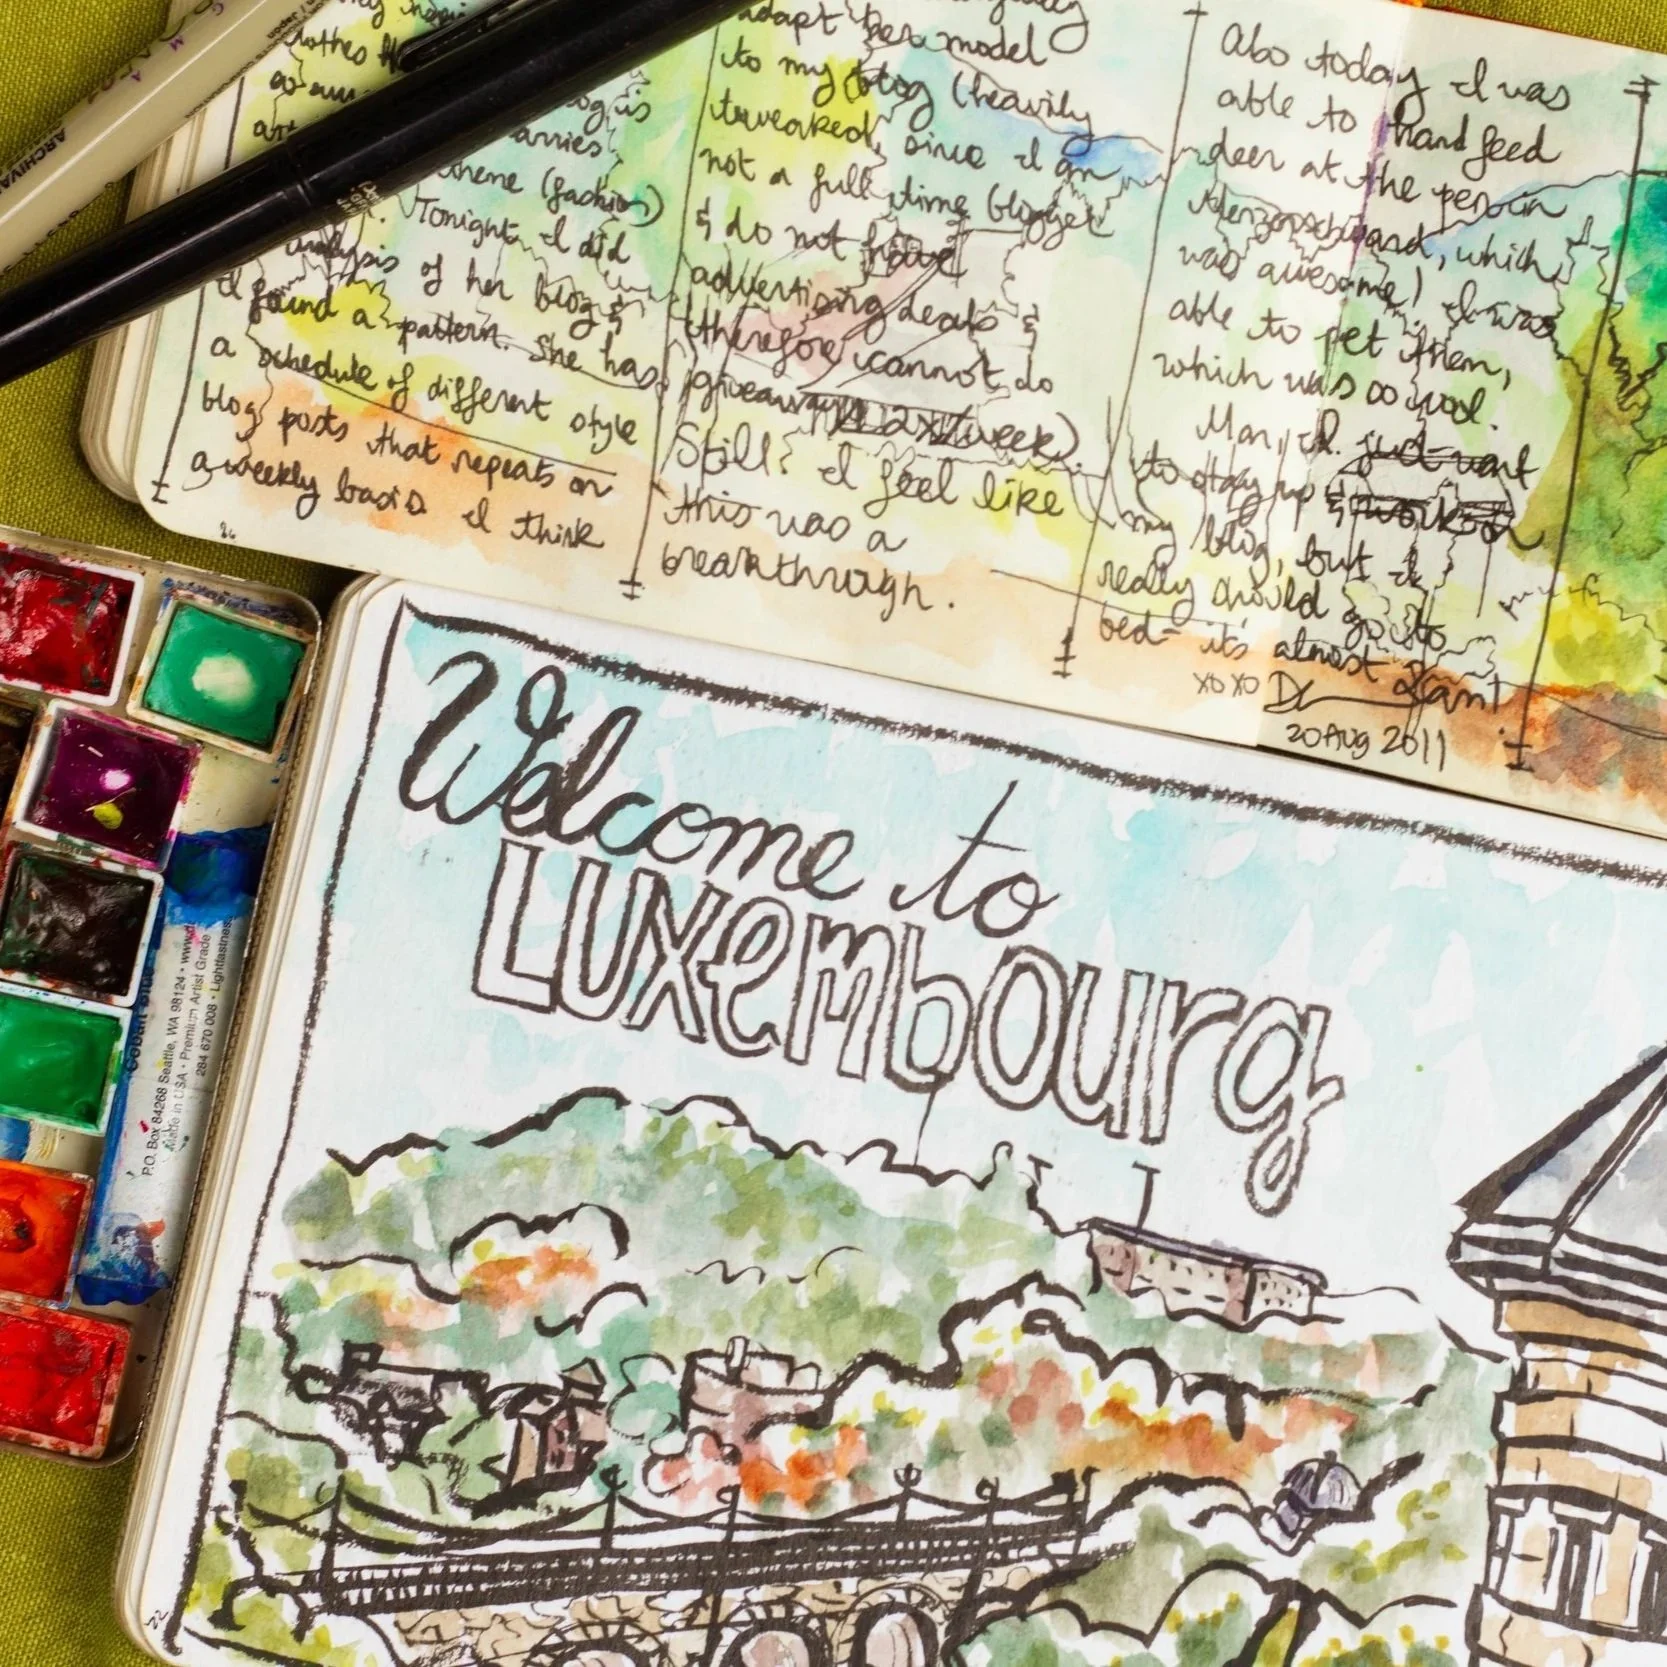 ARCHIVA
clothes
blog is
carries
theme (fashion)
Tonight I did
analysis of her blog &
I found a pattern. She has
a schedule of different style
blog posts that repeats on
a weekly basis. I think
26
adapt her model
to my blog (heavily
tweaked, since I am
not a full time blogger
& do not have
advertising deals &
therefore cannot do
giveaways 2x/week)
Still! I feel like
this was a
breakthrough.
Also today I was
able to hand feed
deer at the
which
was awesome! I was
able to pet them,
which was so cool.
Man, I just want
to stay up & work on
my blog, but I
really should go to
bed - it's almost 2am!
xoxo D
20 Aug 2011
Cobalt Blue
P.O. Box 84268 Seattle, WA 98124 • www.d
Made in USA • Premium Artist Grade
284 670 008 • Lightfastness
Welcome to
LUXembourg
22